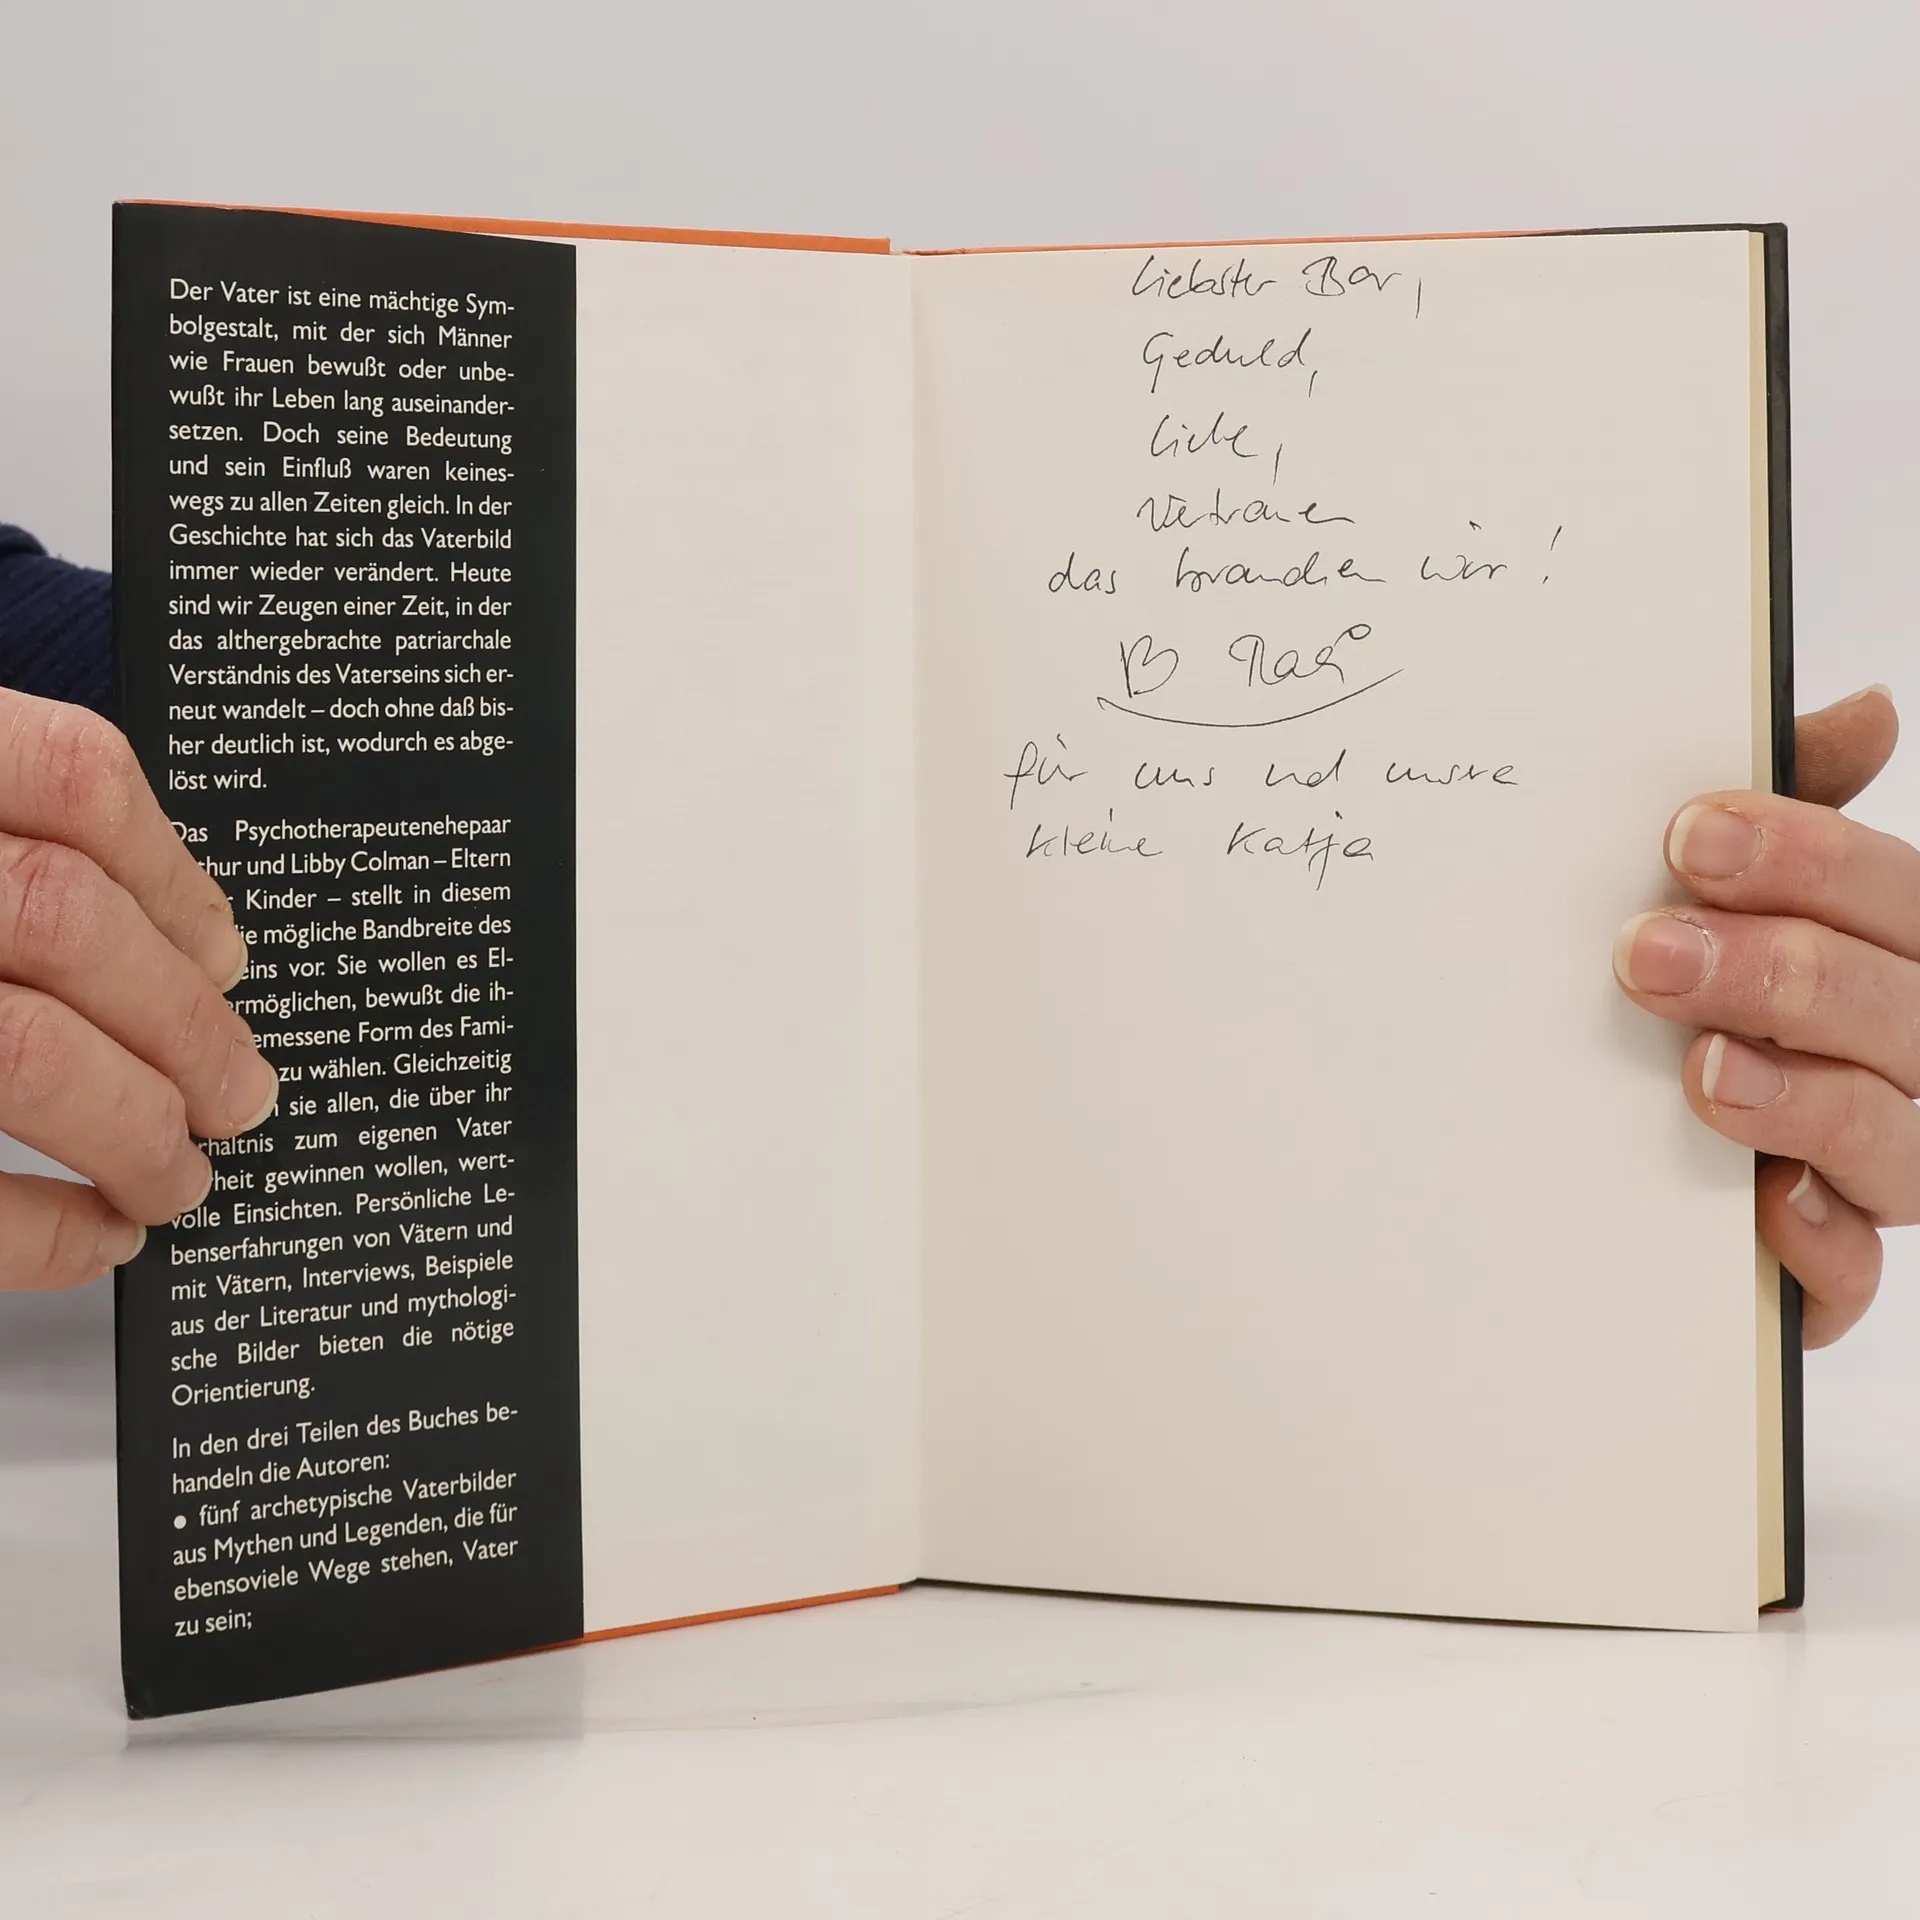 Der Vater ist eine mächtige Sym-
bolgestalt, mit der sich Männer
wie Frauen bewußt oder unbe-
wußt ihr Leben lang auseinander-
setzen. Doch seine Bedeutung
und sein Einfluß waren keines-
wegs zu allen Zeiten gleich. In der
Geschichte hat sich das Vaterbild
immer wieder verändert. Heute
sind wir Zeugen einer Zeit, in der
das althergebrachte patriarchale
Verständnis des Vaterseins sich er-
neut wandelt – doch ohne daß bis-
her deutlich ist, wodurch es abge-
löst wird.
Das Psychotherapeutenehepaar
und Libby Colman – Eltern
Kinder – stellt in diesem
mögliche Bandbreite des
vor. Sie wollen es El-
bewußt die ih-
Form des Fami-
zu wählen. Gleichzeitig
sie allen, die über ihr
zum eigenen Vater
gewinnen wollen, wert-
volle Einsichten. Persönliche Le-
benserfahrungen von Vätern und
mit Vätern, Interviews, Beispiele
aus der Literatur und mythologi-
sche Bilder bieten die nötige
Orientierung.
In den drei Teilen des Buches be-
handeln die Autoren:
● fünf archetypische Vaterbilder
aus Mythen und Legenden, die für
ebensoviele Wege stehen, Vater
zu sein;
Liebster Bär,
Geduld,
Liebe,
Vertrauen
das brauchen wir!
B
für uns und unsere
kleine Katja